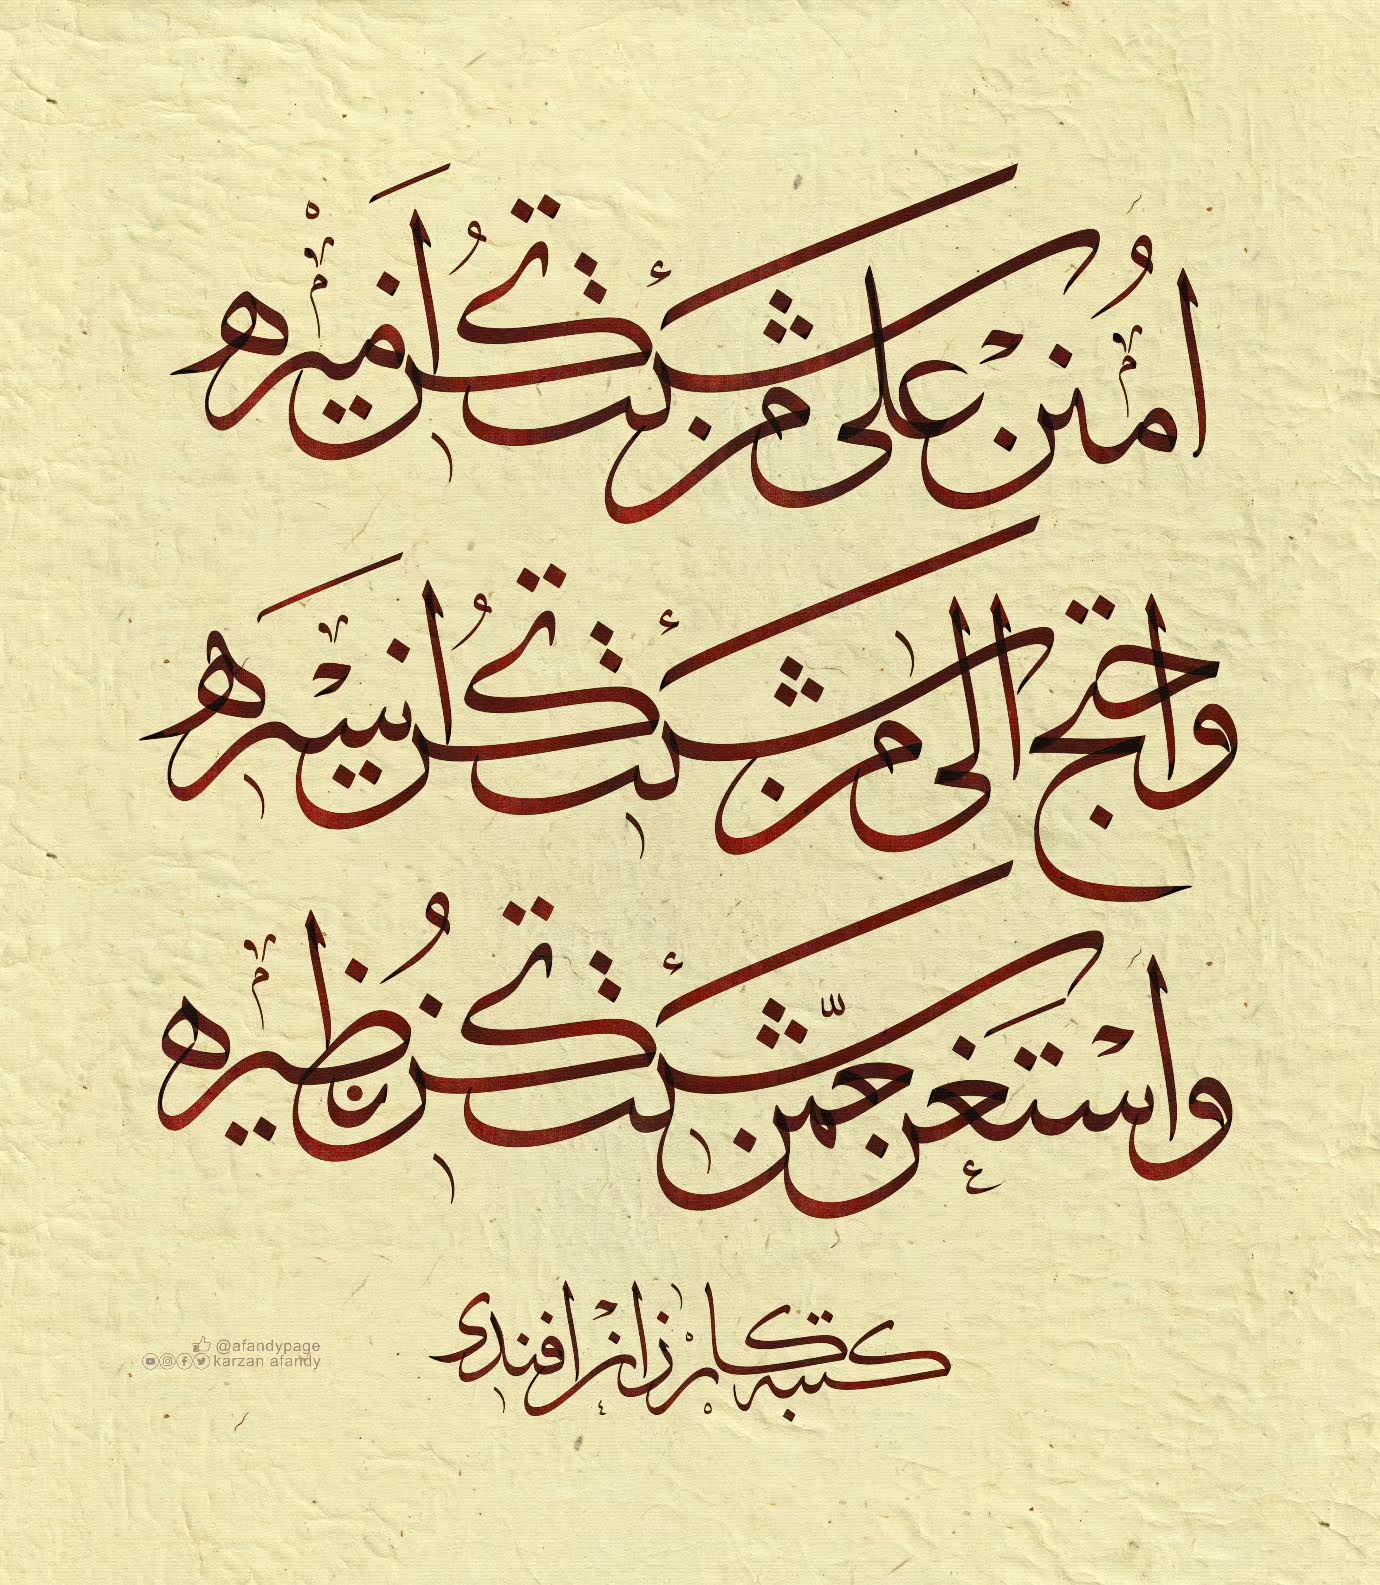 امنن علی من شئت تكن امیره
واحتج الی من شئت تكن اسیره
واستغن عمن شئت تكن نظیره
كتبه كارزان افندی
@afandypage
karzan afandy